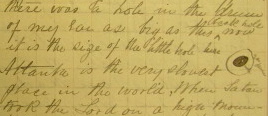 there was a hole in the
of my ear as big as this now
it is the size of the little hole
Atlanta is the very slowest
place in the world. When Satan
took the Lord on a high moun-